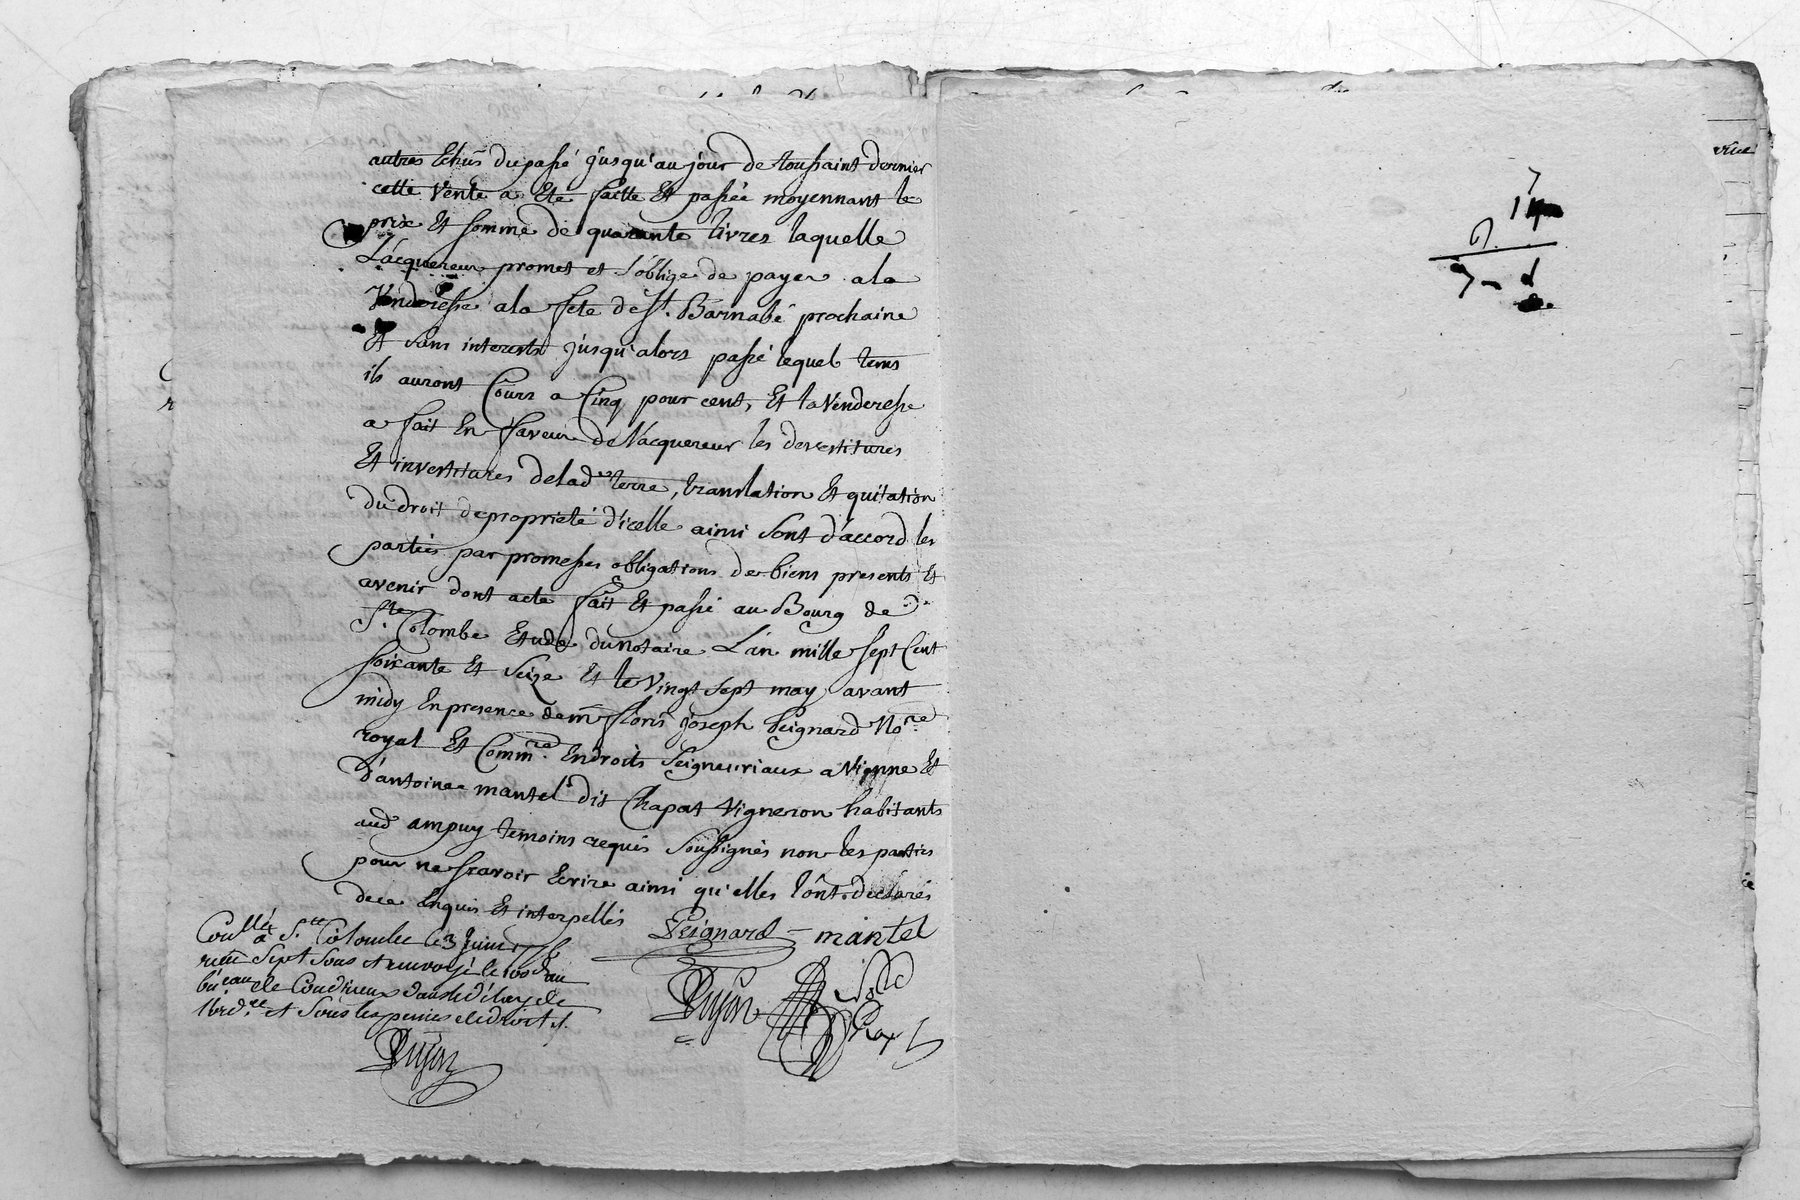 autres Echus du passé jusqu'au jour de toussaint dernier
cette vente a Eté faitte Et passée moyennant le
prix Et somme de quarante livres laquelle
L'acquereur promet et s'oblige de payer a la
Venderesse a la fete de St. Barnabé prochaine
Et sans interests jusqu'alors passé lequel tems
ils auront Cours a Cinq pour cent, Et la Venderesse
a fait En faveur de l'acquereur les devestitures
Et investitures de lad. terre, translation Et quitation
du droit de proprieté d'icelle ainsi sont d'accord les
parties par promesses obligations de biens presents Et
avenir dont acte fait Et passé au Bourg de
Ste. Colombe Etude du notaire L'an mille sept Cent
soixante Et seize Et le vingt sept may avant
midy En presence de me floris joseph Peignard Nore
royal Et Commre. En droits seigneuriaux a Vienne Et
d'antoine mantel dit Chapat vigneron habitants
aud ampuy temoins requis soussignés non les parties
pour ne scavoir Ecrire ainsi qu'elles l'ont declarés
de ce Enquis Et interpellés
Peignard mantel
Conllé a Ste. Colombe le 3 Juin
reçu sept sous et renvoyé le 100e au
bureau de Condrieux dans le délay de
l'ord.ce et sous les peines de droit
Dujon
Dujon